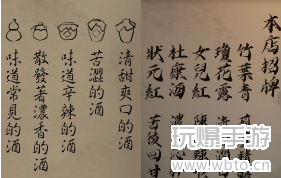 本店招牌
竹葉青
瓊花露
女兒紅
杜康酒
狀元紅 苦後回甘
清甜爽口的酒
苦澀的酒
味道辛辣的酒
散發著濃香的酒
味道常見的酒
玩爆手游
www.wbto.cn